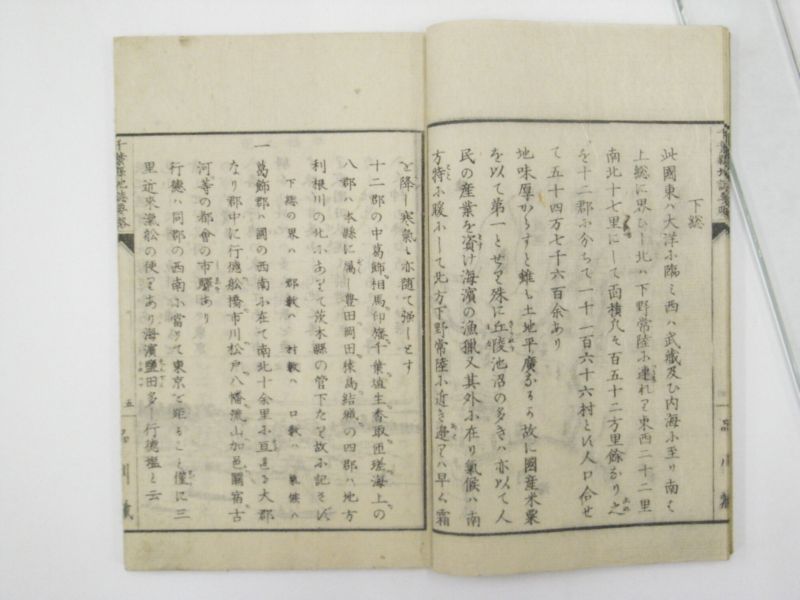 下総
此國東ハ大洋小臨ミ西ハ武蔵及ひ内海小至り南く
上総に界ひし北ハ下野常陸小連れり東西二十二里
南北十七里にして面積凡そ百五十二方里餘なり之
を十二郡小分ちて一千一百六十六村とす人口合せ
て五十四万七千六百余あり
地味厚からすと雖も土地平廣なるか故に國産米粟
を以て第一とせり殊に丘陵池沼の多きハ亦以て人
民の産業を資け海濱の漁獵又其外小在り氣候ハ南
方特小暖小して北方下野常陸小近き邊りハ早く霜
を降し寒氣も亦随て強しとす
十二郡の中葛飾相馬印旛千葉埴生香取匝瑳海上の
八郡ハ本縣に属し豊田岡田猿島結城の四郡ハ地方
利根川の北小ありて茨木縣の管下たり故小記せす
下總の界ハ 郡數ハ 村數ハ 口數ハ 氣候ハ
一葛飾郡ハ國の西南小在て南北十余里小亘れる大郡
なり郡中に行德舩橋市川松戸八幡流山加邑關宿古
河等の都會の市驛あり
行德ハ同郡の西南小當りて東京を距ること僅に三
里近來滊舩の便りあり海濱鹽田多し行德鹽と云
千葉縣地誌要略
五